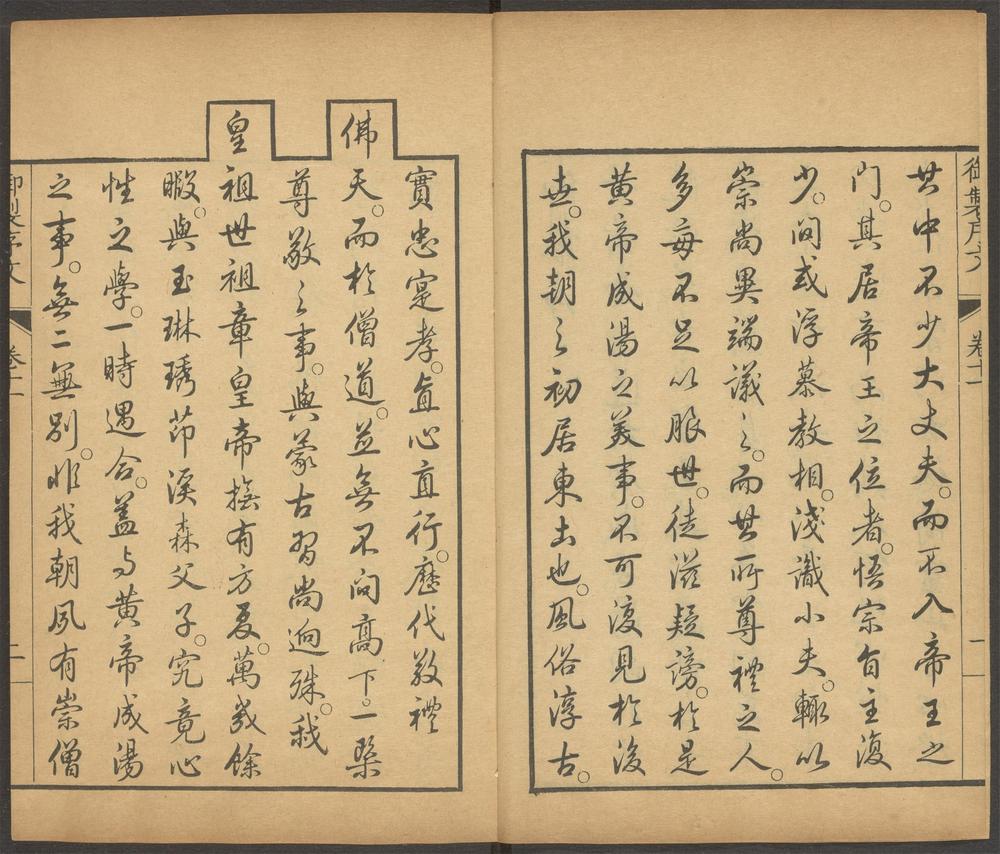 御製序文
卷十二
一
其中不少大丈夫。而不入帝王之
門。其居帝王之位者。悟宗旨主復
少。间或浮慕教相。淺識小夫。輒以
崇尚異端議之。而其所尊禮之人。
多每不足以服世。徒滋疑謗。於是
黄帝成湯之美事。不可復見於後
世。我朝之初居東土也。風俗淳古。
實忠寔孝。直心直行。歷代敬禮
佛
天。而於僧道。並無不问高下。一槩
尊敬之事。與蒙古習尚迥殊。我
皇
祖世祖章皇帝撫有方夏。萬幾餘
暇。與玉琳琇茆溪森父子。究竟心
性之學。一時遇合。盖与黄帝成湯
之事。無二無别。非我朝夙有崇僧
御製序文
卷十二
二